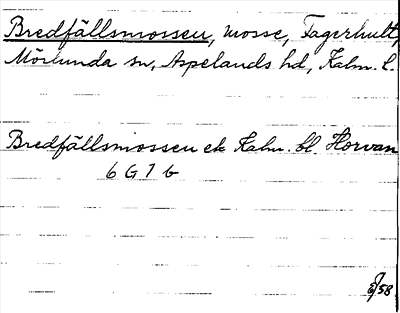 Bredfällsmossen, mosse, Fagerhult,
Mörlunda sn, Aspelands hd, Kalm. l.
Bredfällsmossen ek Kalm. bl. Horvan
6 G 7 b
58